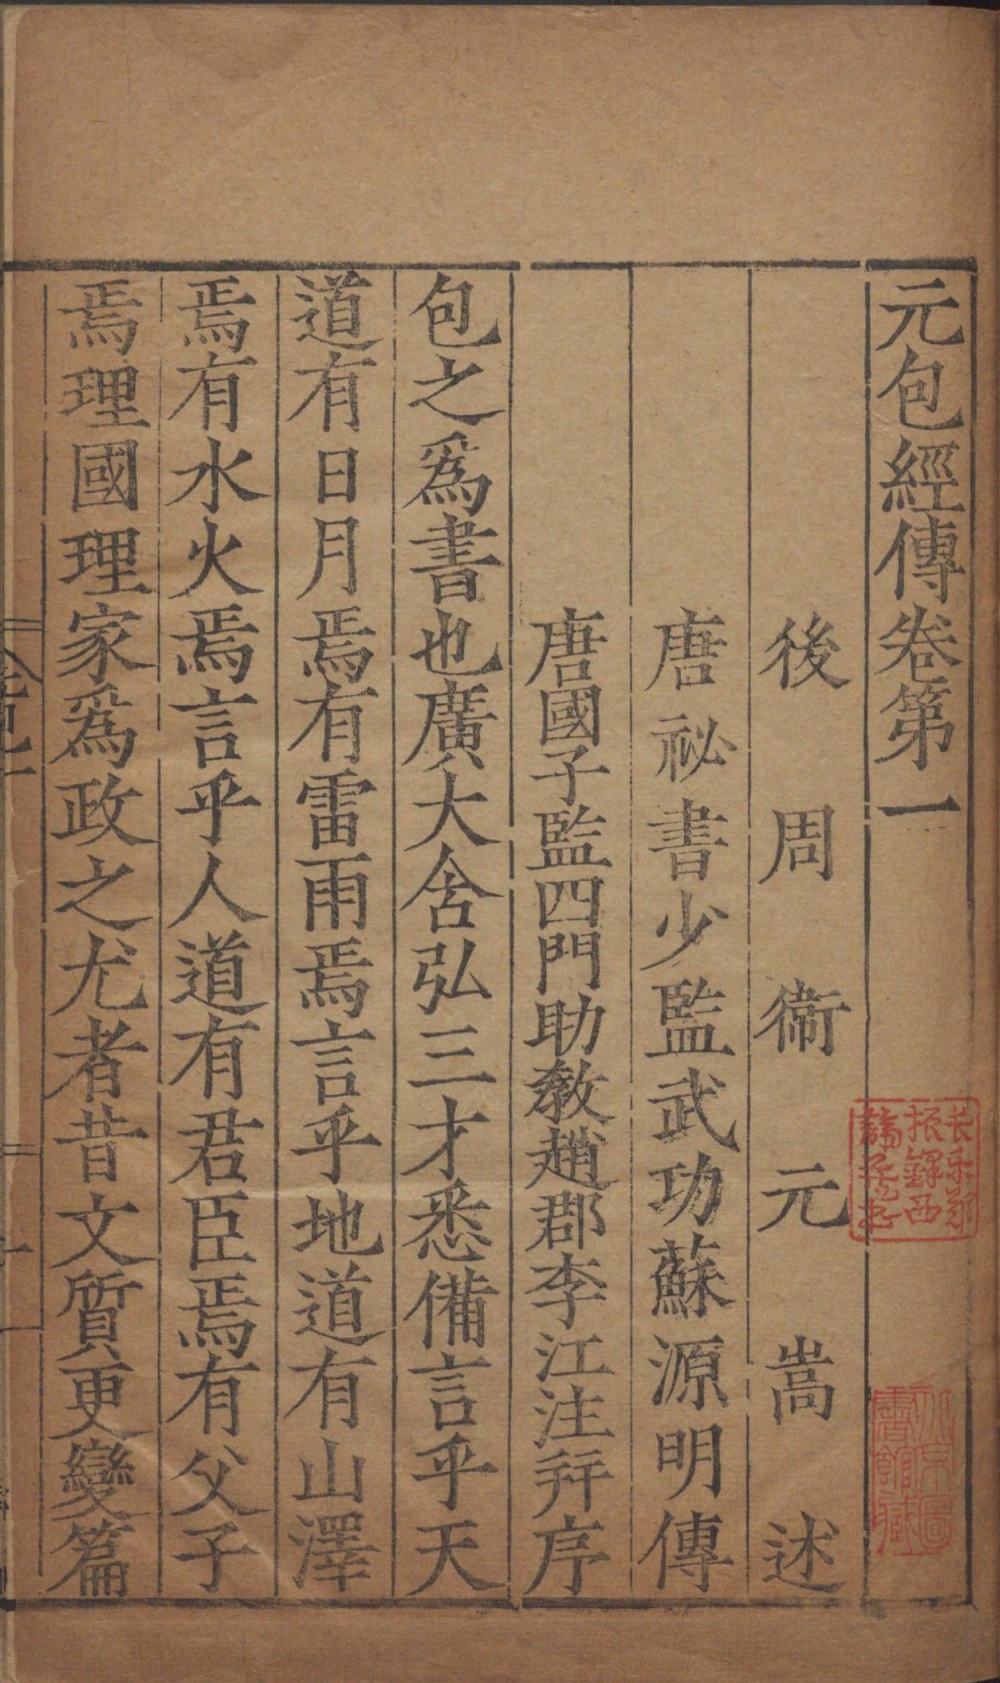 元包經傳卷第一
後周衞元嵩述
唐祕書少監武功蘇源明傳
唐國子監四門助敎趙郡李江注幷序
包之爲書也廣大含弘三才悉備言乎天
道有日月焉有雷雨焉言乎地道有山澤
焉有水火焉言乎人道有君臣焉有父子
焉理國理家爲政之尤者昔文質更變篇
长乐郑
振铎西
諦藏书
北京圖
書館藏